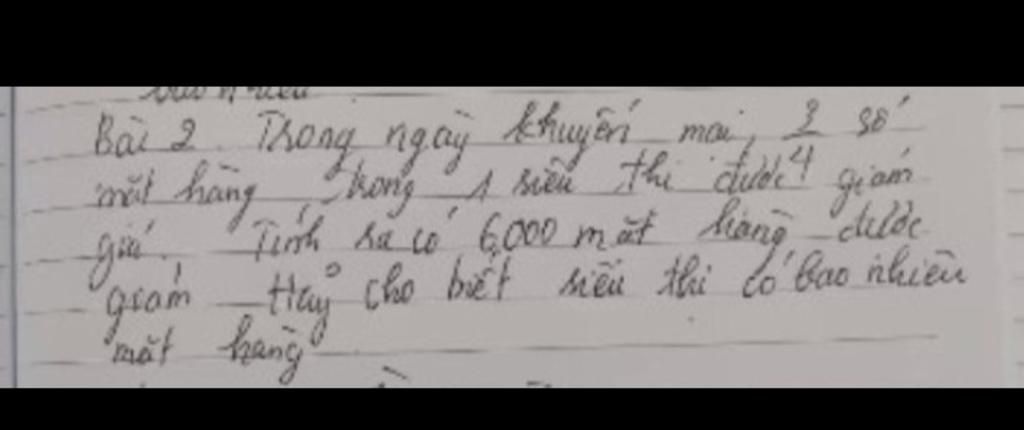 Bài 2. Trong ngày khuyến mai, 3/4 số
mặt hàng trong 1 siêu thi được giảm
giá. Tính ra có 6,000 mặt hàng được
giảm Hãy cho biết siêu thi có bao nhiêu
mặt hàng